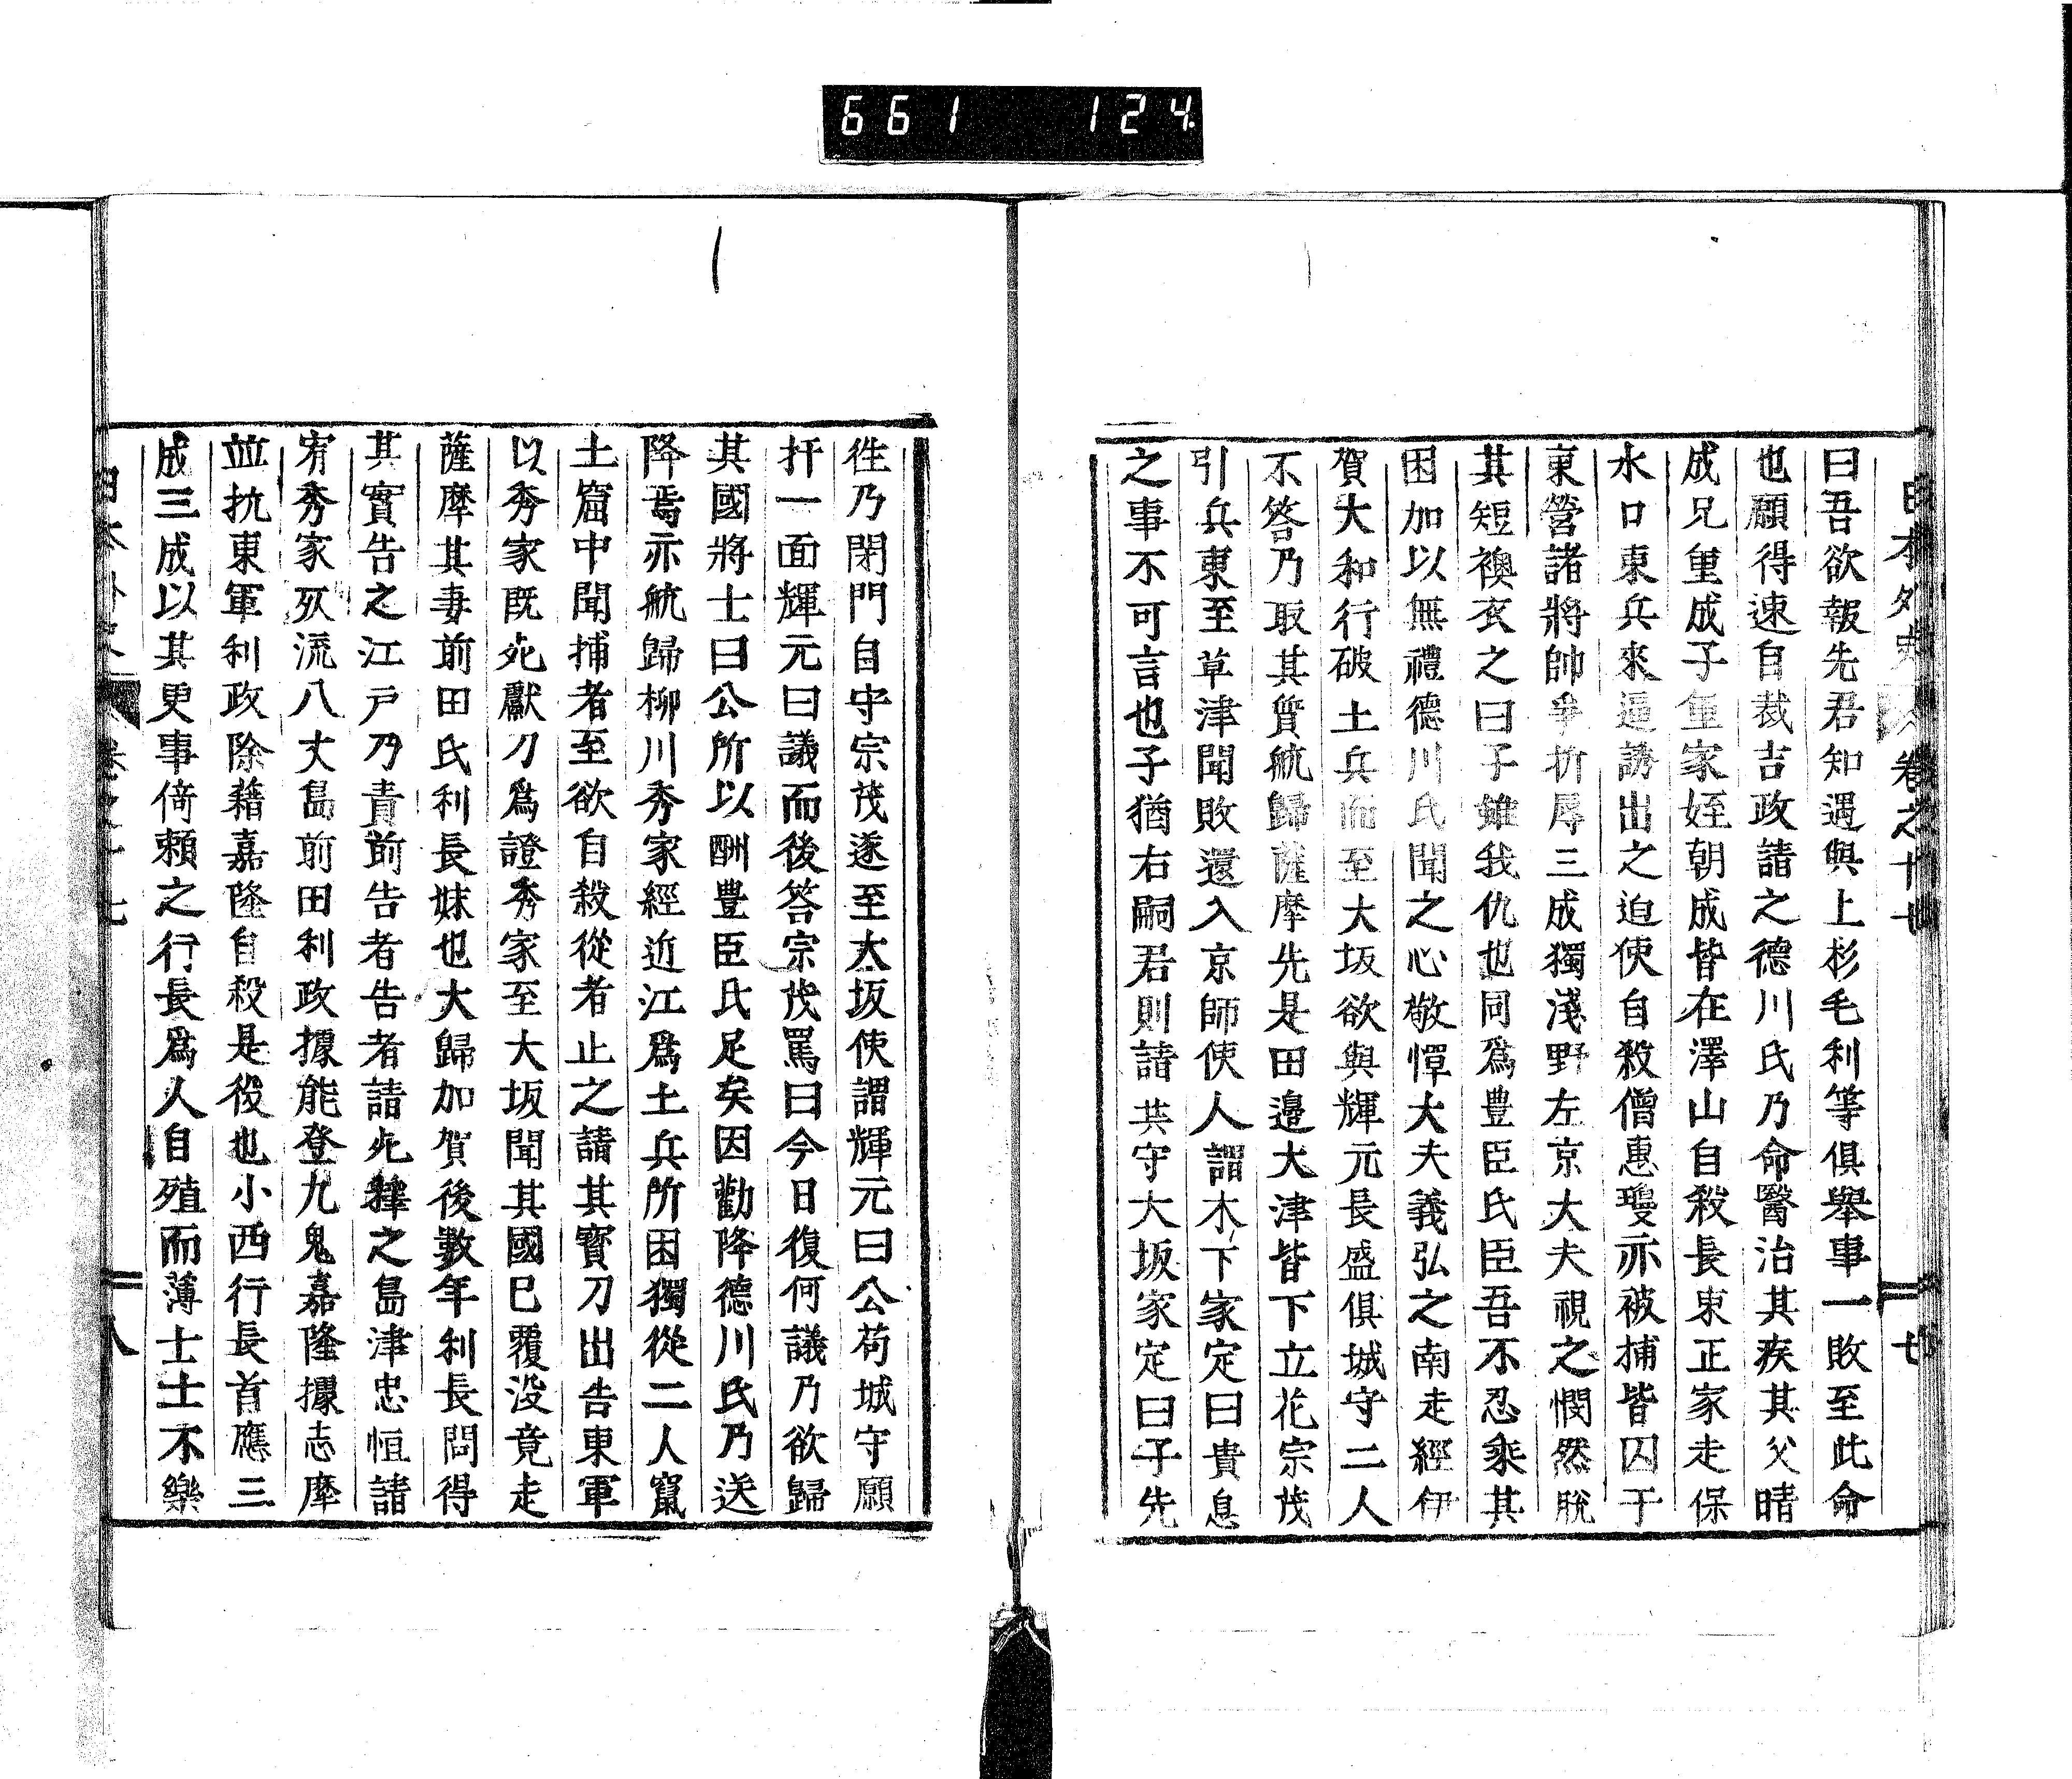 661 124
日本外史 卷之十七 七
曰吾欲報先君知遇與上杉毛利等俱舉事一敗至此命
也願得速自裁吉政諸之德川氏乃命醫治其疾其父晴
成兄重成子重家姪朝成皆在澤山自殺長束正家走保
水口東兵來逼誘出之迫使自殺僧惠瓊亦被捕皆囚于
東營諸將帥爭折辱三成獨淺野左京大夫視之憫然脫
其短襖衣之曰子雖我仇也同爲豊臣氏臣吾不忍乘其
困加以無禮德川氏聞之心敬憚大夫義弘之南走經伊
賀大和行破土兵而至大坂欲與輝元長盛俱城守二人
不答乃取其質航歸薩摩先是田邉大津皆下立花宗茂
引兵東至草津聞敗還入京師使人謂木下家定曰貴息
之事不可言也子猶右嗣君則請共守大坂家定曰子先
徃乃閉門自守宗茂遂至大坂使謂輝元曰公苟城守願
扞一面輝元曰議而後答宗茂罵曰今日復何議乃欲歸
其國將士曰公所以酬豊臣氏足矣因勸降德川氏乃送
降焉亦航歸柳川秀家經近江爲土兵所困獨從二人竄
土窟中聞捕者至欲自殺從者止之請其寳刀出告東軍
以秀家既死獻刀爲證秀家至大坂聞其國已覆没竟走
薩摩其妻前田氏利長妹也大歸加賀後數年利長問得
其實告之江戸乃責前告者告者請死釋之島津忠恒請
宥秀家死流八丈島前田利政據能登九鬼嘉隆據志摩
並抗東軍利政除籍嘉隆自殺是役也小西行長首應三
成三成以其更事倚賴之行長爲人自殖而薄士士不樂
日本外史 卷之十七 八